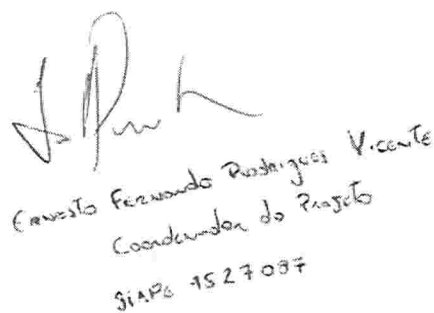 Ernesto Fernando Rodrigues Vicente
Coordenador do Projeto
SIAPE 1527097